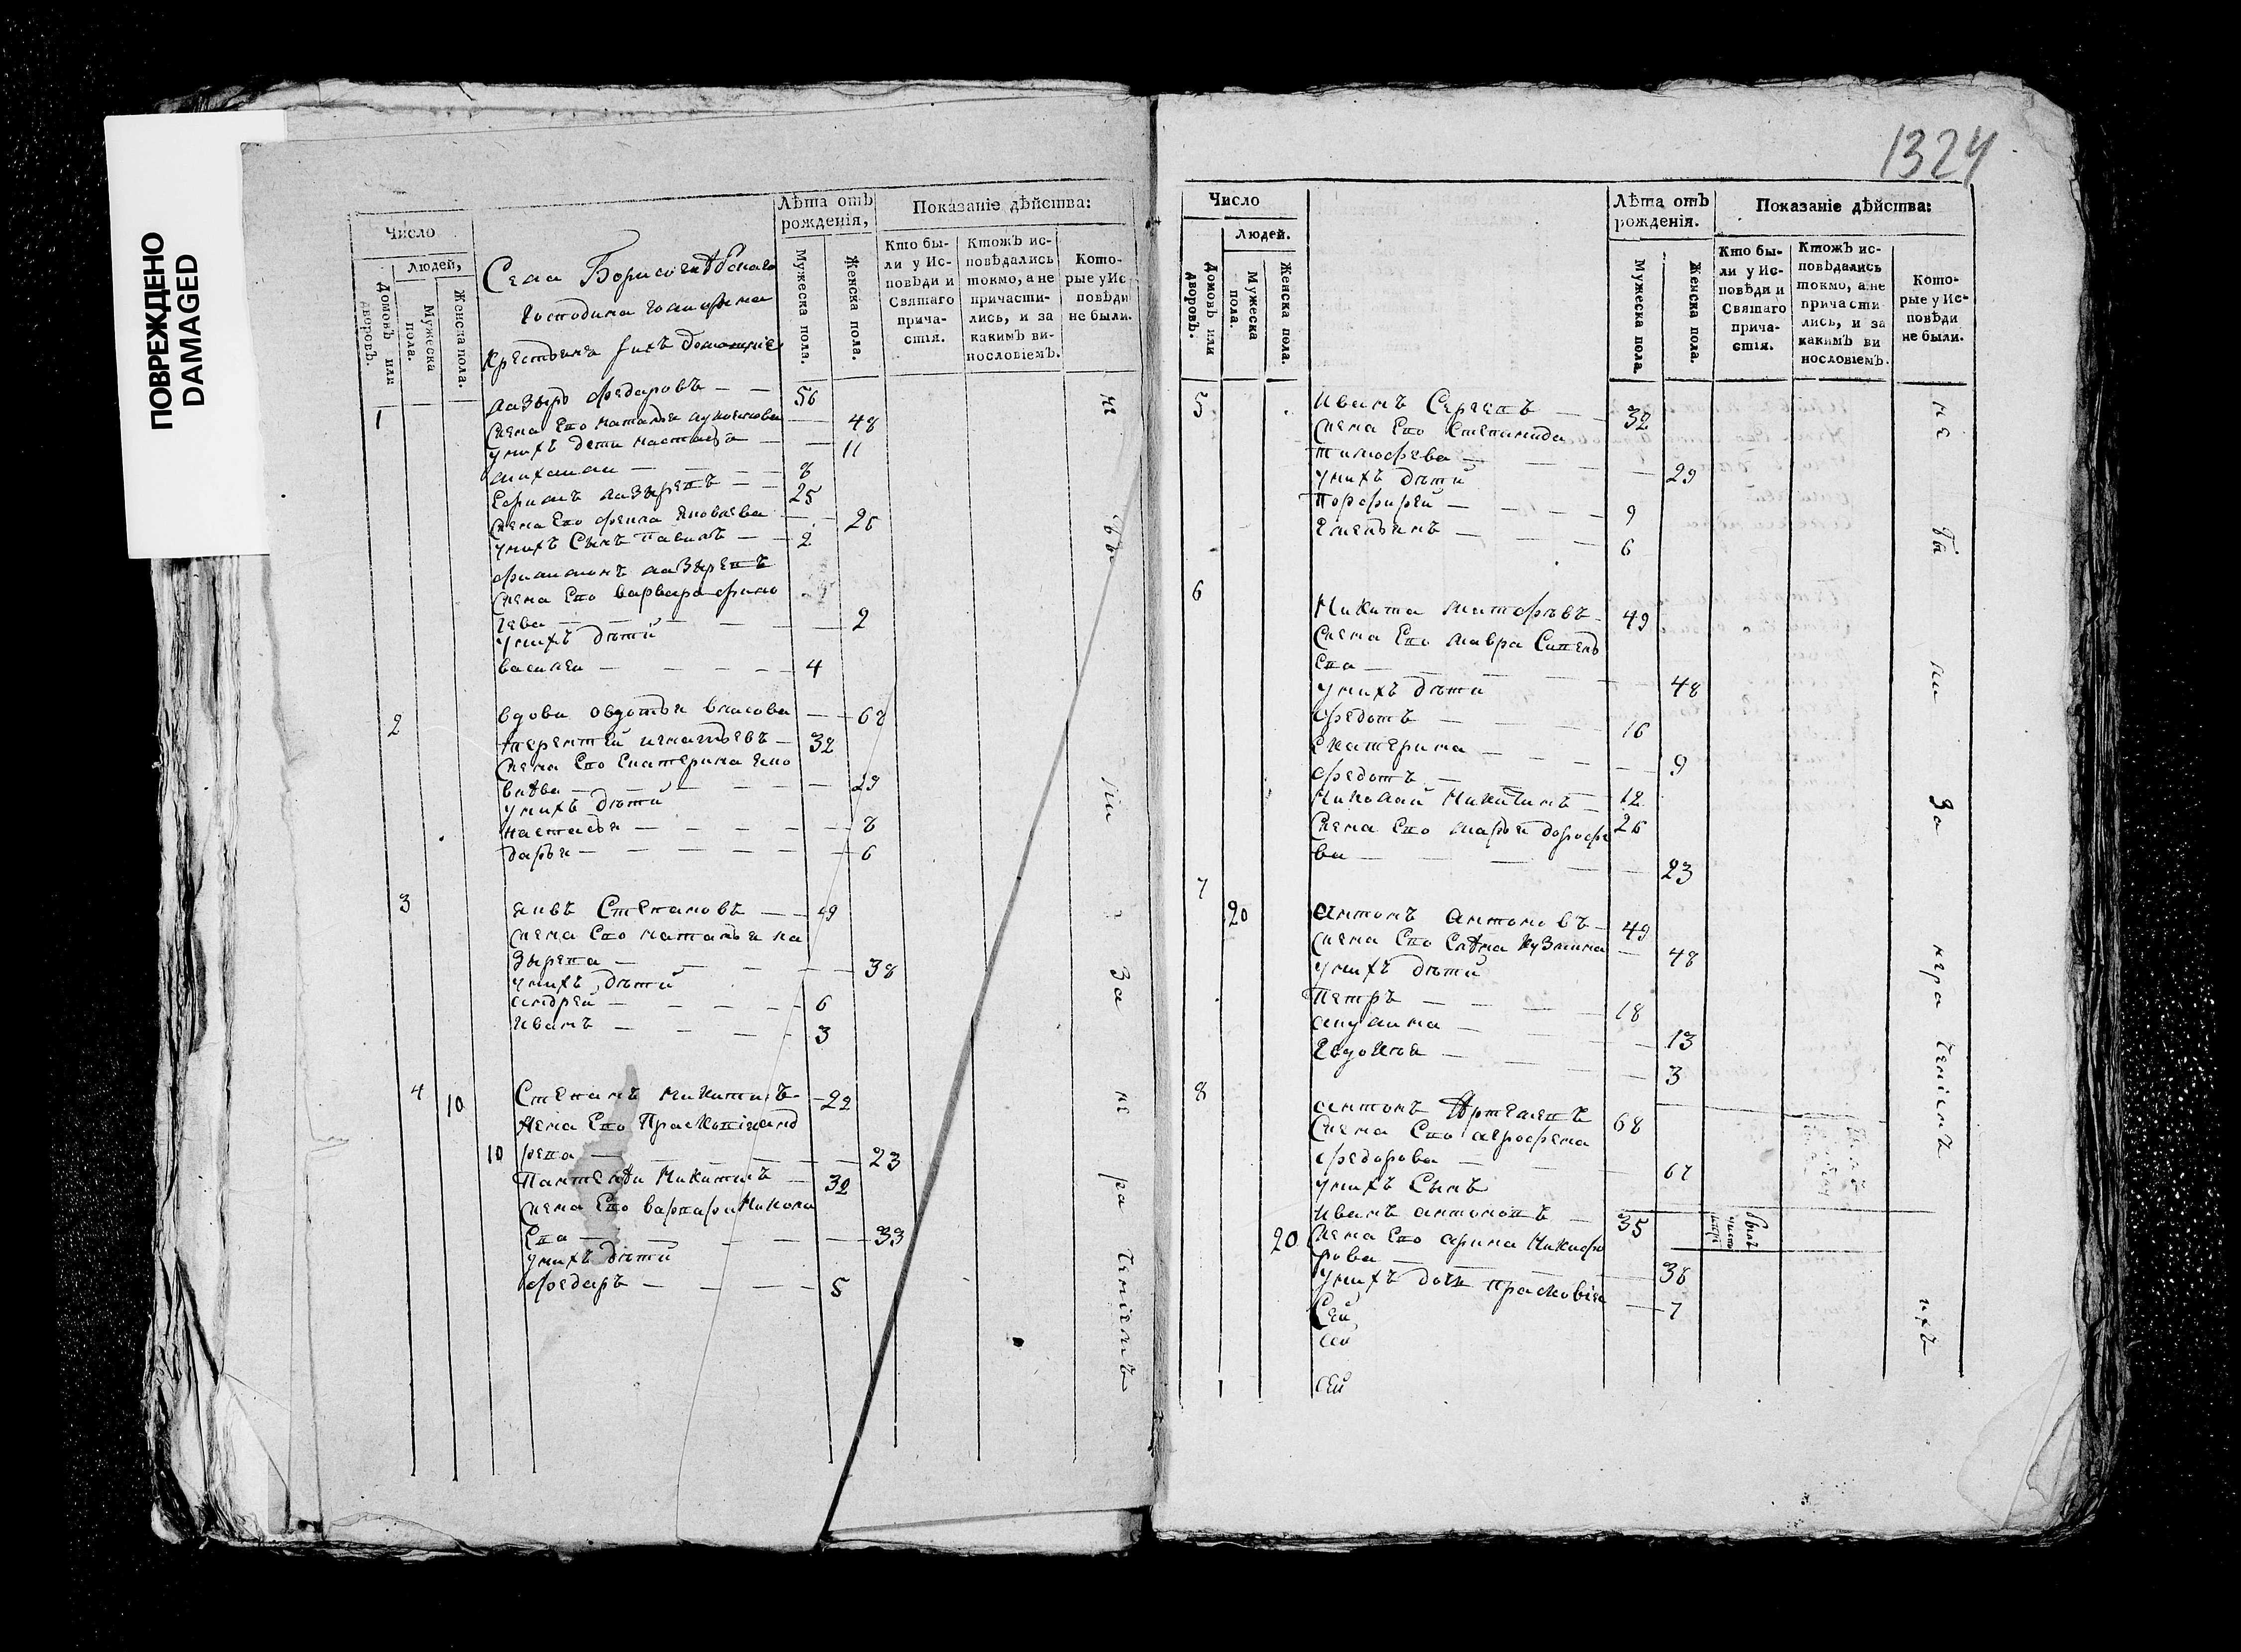 ПОВРЕЖДЕНО
DAMAGED
Число
Людей,
Домовъ или дворовъ.
Мужеска пола.
Женска пола.
Лѣта отъ рожденія,
Мужеска пола.
Женска пола.
Показаніе дѣйства:
Кто бы-
ли у Ис-
повѣди и
Святаго
прича-
стія.
Ктожъ ис-
повѣдались
токмо, а не
причасти-
лись, и за
какимъ ви-
нословіемъ.
Кото-
рые у Ис-
повѣди
не были.
Села
Господина
Крестьяне ихъ домашніе
1 лазырь федаровъ 56
жена Его наталья 48
у нихъ дети настасья 11
михаила 8
Ефимъ лазыревъ 25
жена Его фекла яковлева 26
у нихъ Сынъ павилъ 2
филимонъ лазыревъ
жена Его варвара фимо
гева 2
у нихъ дѣти
василеи 4
2 вдова овдотья власова 68
терентей игнатьевъ 32
жена Его Екатерина яко
влѣва 29
у нихъ дѣти
настасья 8
дарья 6
3 яковъ Степановъ 49
жена Его наталья на
зырева 38
у нихъ дѣти
андрей 6
иванъ 3
4 10 Степанъ никитинъ 22
жена Его Прасковія анд
10 рева 23
Пантелѣи Никитинъ 32
жена Его варвара Никола
Ева 33
у нихъ дѣти
федаръ 5
не
бы
ли
за
не
ра
ченіемъ
1324
Число
Людей.
Домовъ или дворовъ.
Мужеска пола.
Женска пола.
Лѣта отъ рожденія.
Мужеска пола.
Женска пола.
Показаніе дѣйства:
Кто бы-
ли у Ис-
повѣди и
Святаго
прича-
стія.
Ктожъ ис-
повѣдались
токмо, а не
причасти
лись, и за
какимъ ви
нословіемъ.
Кото-
рые у Ис-
повѣди
не были.
5 Иванъ Сергевъ 32
жена Его Степанида
тимофева 29
у нихъ дѣти
Порфирей 9
Емельянъ 6
6 Никита митофовъ 49
жена Его мавра Савель
Ева 48
у нихъ дѣти
федотъ 16
Екатерина 9
федотъ 12
Николай Никитинъ 26
жена Его марья дорофе
ва 23
7 20 антонъ антоновъ 49
жена Его Елѣна Кузмина 48
у нихъ дѣти
Петръ 18
акулина 13
Евдокея 3
8 антонъ Артемевъ 68
жена Его агрофена
федорова 67
у нихъ Сынъ
Иванъ антоновъ 35
20 жена Его арина Никифо
рова 38
у нихъ дочь прасковія 7
Сей
сей
сей
не
бы
ли
за
нера
ченіемъ
ихъ